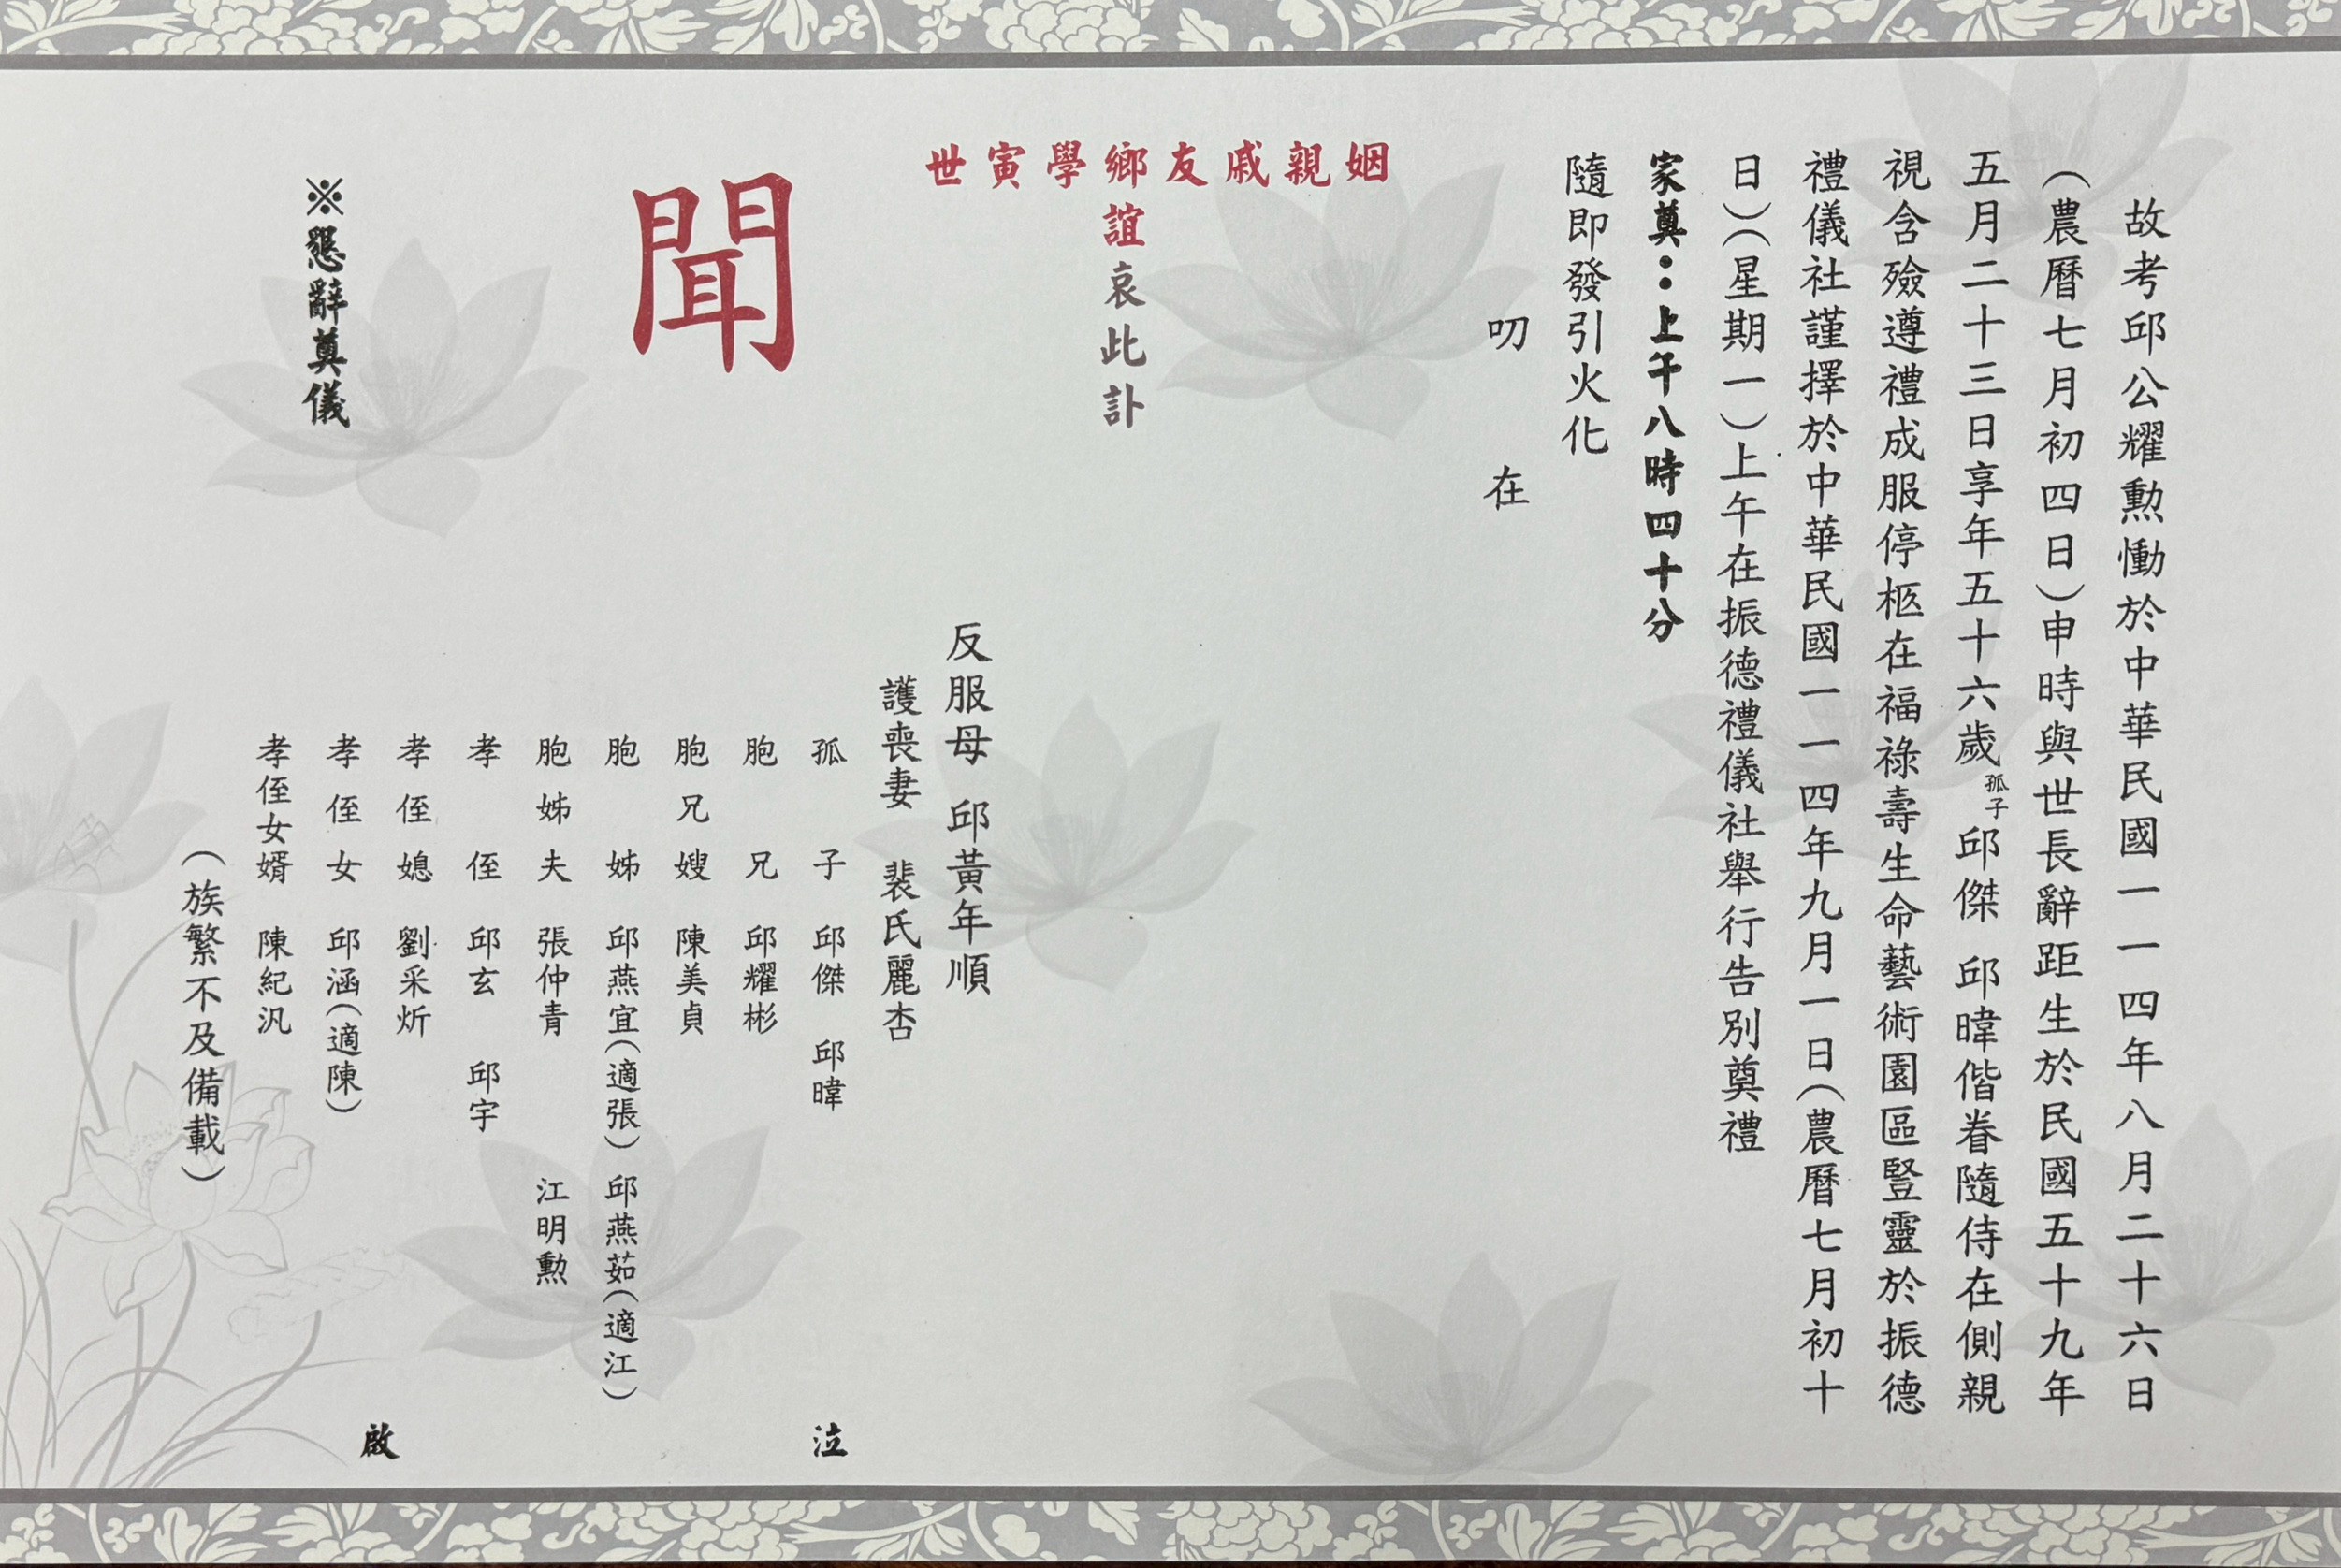 故考邱公耀勳慟於中華民國一一四年八月二十六日
（農曆七月初四日）申時與世長辭距生於民國五十九年
五月二十三日享年五十六歲孤子邱傑 邱暐偕眷隨侍在側親
視含殮遵禮成服停柩在福祿壽生命藝術園區豎靈於振德
禮儀社謹擇於中華民國一一四年九月一日（農曆七月初十
日）（星期一）上午在振德禮儀社舉行告別奠禮
家奠：上午八時四十分
隨即發引火化
叨 在
姻親戚友鄉學寅世
誼哀此訃
聞
反服母 邱黃年順
護喪妻 裴氏麗杏
孤子 邱傑 邱暐
胞兄 邱耀彬
胞兄嫂 陳美貞
胞姊 邱燕宜（適張） 邱燕茹（適江）
胞姊夫 張仲青 江明勳
孝侄 邱玄 邱宇
孝侄媳 劉采炘
孝侄女 邱涵（適陳）
孝侄女婿 陳紀汎
（族繁不及備載）
泣 啟
※懇辭奠儀